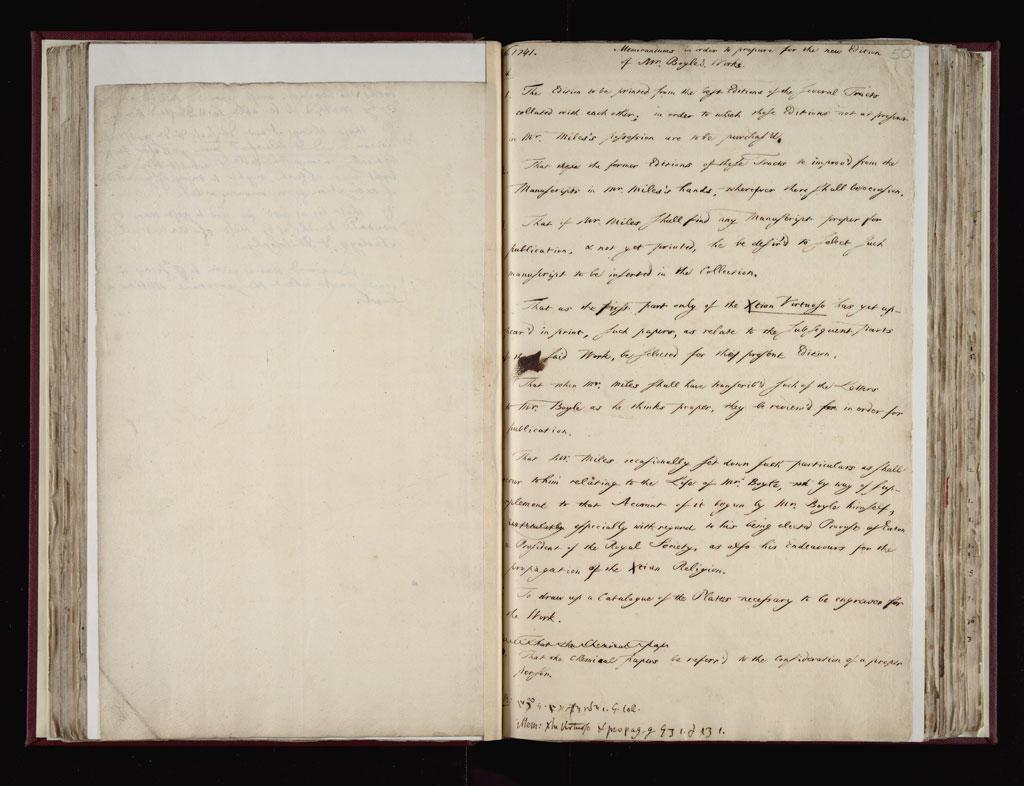 1741. Memorandums in order to prepare for the new Edition 50
of Mr. Boyle's Works.
The Edition to be printed from the best Editions of the several Tracts
collated with each other; in order to which those Editions not at present
in Mr. Miles's possession are to be purchas'd.
That the former Editions of these Tracts be improv'd from the
Manuscripts in Mr. Miles's hands, wherever there shall be occasion.
That if Mr. Miles shall find any Manuscript proper for
publication, & not yet printed, he be desir'd to select such
manuscript to be inserted in the Collection.
That as the first part only of the Xtian Virtuoso has yet ap-
pear'd in print, such papers, as relate to the subsequent parts
said Work, be selected for this present Edition.
That when Mr. Miles shall have transcrib'd such of the Letters
to Mr. Boyle as he thinks proper, they be review'd in order for
publication.
That Mr. Miles occasionally set down such particulars as shall
occur to him relating to the Life of Mr. Boyle, by way of Sup-
plement to that Account of it begun by Mr. Boyle himself,
especially with regard to his being elected Provost of Eaton
& President of the Royal Society, as also his Endeavours for the
propagation of the Xtian Religion.
To draw up a Catalogue of the Plates necessary to be engraven for
the Work.
That the Chemical pap
That the Chemical papers be referr'd to the Consideration of a proper
person.
Mem: Virtuoso & propag.